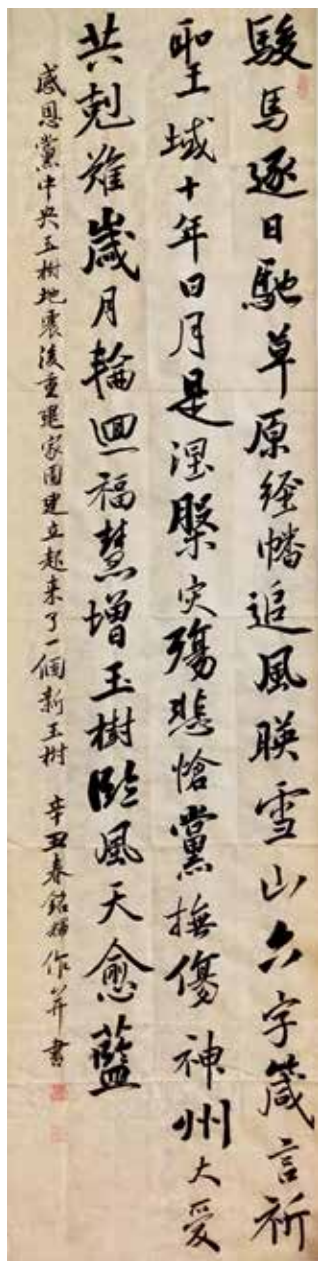 駿馬逐日馳草原經幡追風映雪山六字箴言祈
聖域十年日月是涅槃災殤悲愴黨撫傷神州大愛
共剋難歲月輪迴福慧增玉樹臨風天愈藍
感恩黨中央玉樹地震後重建家園建立起來了一個新玉樹 辛丑春銘 作并書